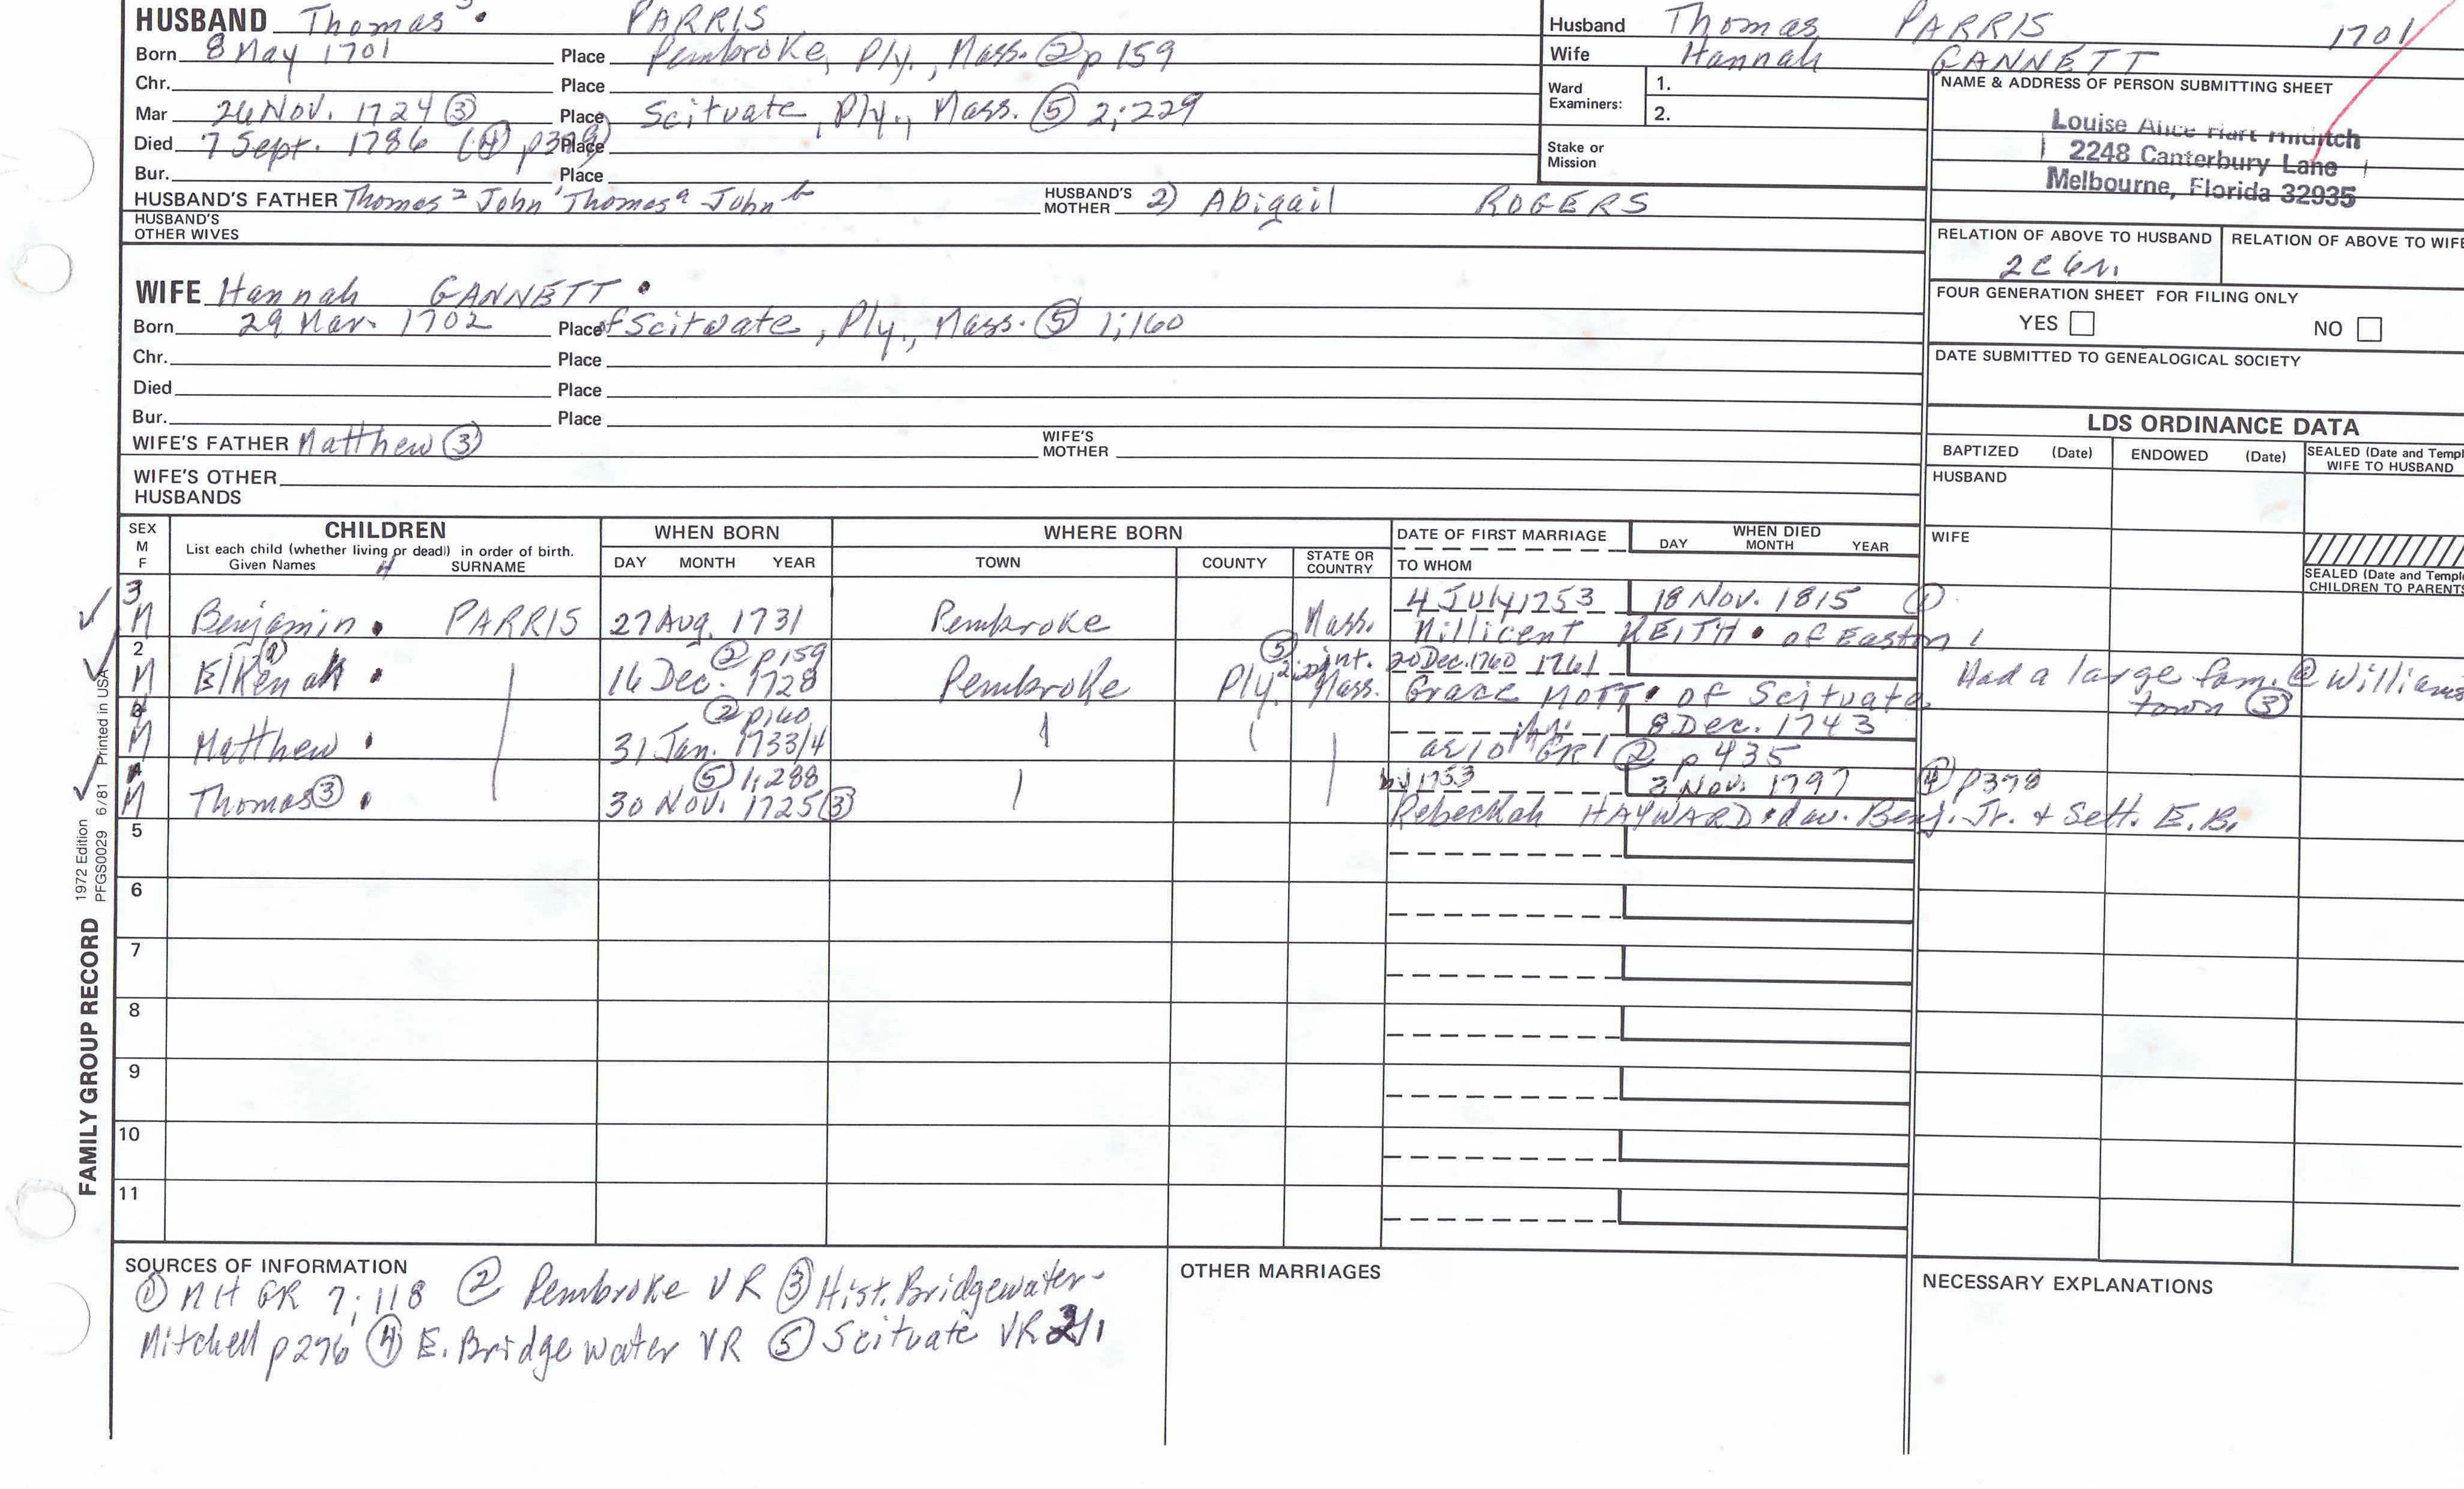 HUSBAND Thomas 3 • PARRIS
Born 8 May 1701 Place Pembroke, Ply., Mass. ② p 159
Chr. Place
Mar 26 Nov. 1724 ③ Place Scituate, Ply., Mass. ⑤ 2:229
Died 7 Sept. 1786 (④ p378) Place
Bur. Place
HUSBAND'S FATHER Thomas 2 John 1 Thomas a John b HUSBAND'S MOTHER 2) Abigail ROGERS
HUSBAND'S OTHER WIVES
Husband Thomas PARRIS 1701
Wife Hannah GANNETT
Ward Examiners: 1.
2.
Stake or Mission
NAME & ADDRESS OF PERSON SUBMITTING SHEET
Louise Alice Hart
2248 Canterbury Lane
Melbourne, Florida 32935
RELATION OF ABOVE TO HUSBAND RELATION OF ABOVE TO WIFE
2C 6r.
FOUR GENERATION SHEET FOR FILING ONLY
YES NO
DATE SUBMITTED TO GENEALOGICAL SOCIETY
WIFE Hannah GANNETT •
Born 29 Mar. 1702 Place of Scituate, Ply., Mass. ⑤ 1:160
Chr. Place
Died Place
Bur. Place
WIFE'S FATHER Matthew ③ WIFE'S MOTHER
WIFE'S OTHER HUSBANDS
LDS ORDINANCE DATA
BAPTIZED (Date) ENDOWED (Date) SEALED (Date and Templ
WIFE TO HUSBAND
HUSBAND
WIFE
SEALED (Date and Templ
CHILDREN TO PARENTS
SEX M F CHILDREN WHEN BORN WHERE BORN DATE OF FIRST MARRIAGE WHEN DIED
List each child (whether living or dead) in order of birth.
Given Names 4 SURNAME DAY MONTH YEAR TOWN COUNTY STATE OR COUNTRY TO WHOM DAY MONTH YEAR
3 4 July 1753 18 Nov. 1815 ①
M Benjamin • PARRIS 27 Aug. 1731 Pembroke Mass. Millicent KEITH • of Easton
2 ② p159 ⑤ int. 20 Dec. 1760 1761
M Elkenah • 16 Dec. 1728 Pembroke Ply. Mass. Grace MOTT • of Scituate Had a large fam. @ Williams town ③
② p160 8 Dec. 1743
M Matthew • 31 Jan. 1733/4 ae 10 GR1 ② p 435
⑤ 1:288 by 1753 2 Nov. 1797 ④ p378
M Thomas ③ • 30 Nov. 1725 ③ Rebeckah HAYWARD • dau. Benj. Jr. & Sett. E.B.
5
6
7
8
9
10
11
FAMILY GROUP RECORD 1972 Edition PFGS0029 6/81 Printed in USA
SOURCES OF INFORMATION
① NH GR 7:118 ② Pembroke VR ③ Hist. Bridgewater-
Mitchell p276 ④ E. Bridgewater VR ⑤ Scituate VR
OTHER MARRIAGES
NECESSARY EXPLANATIONS